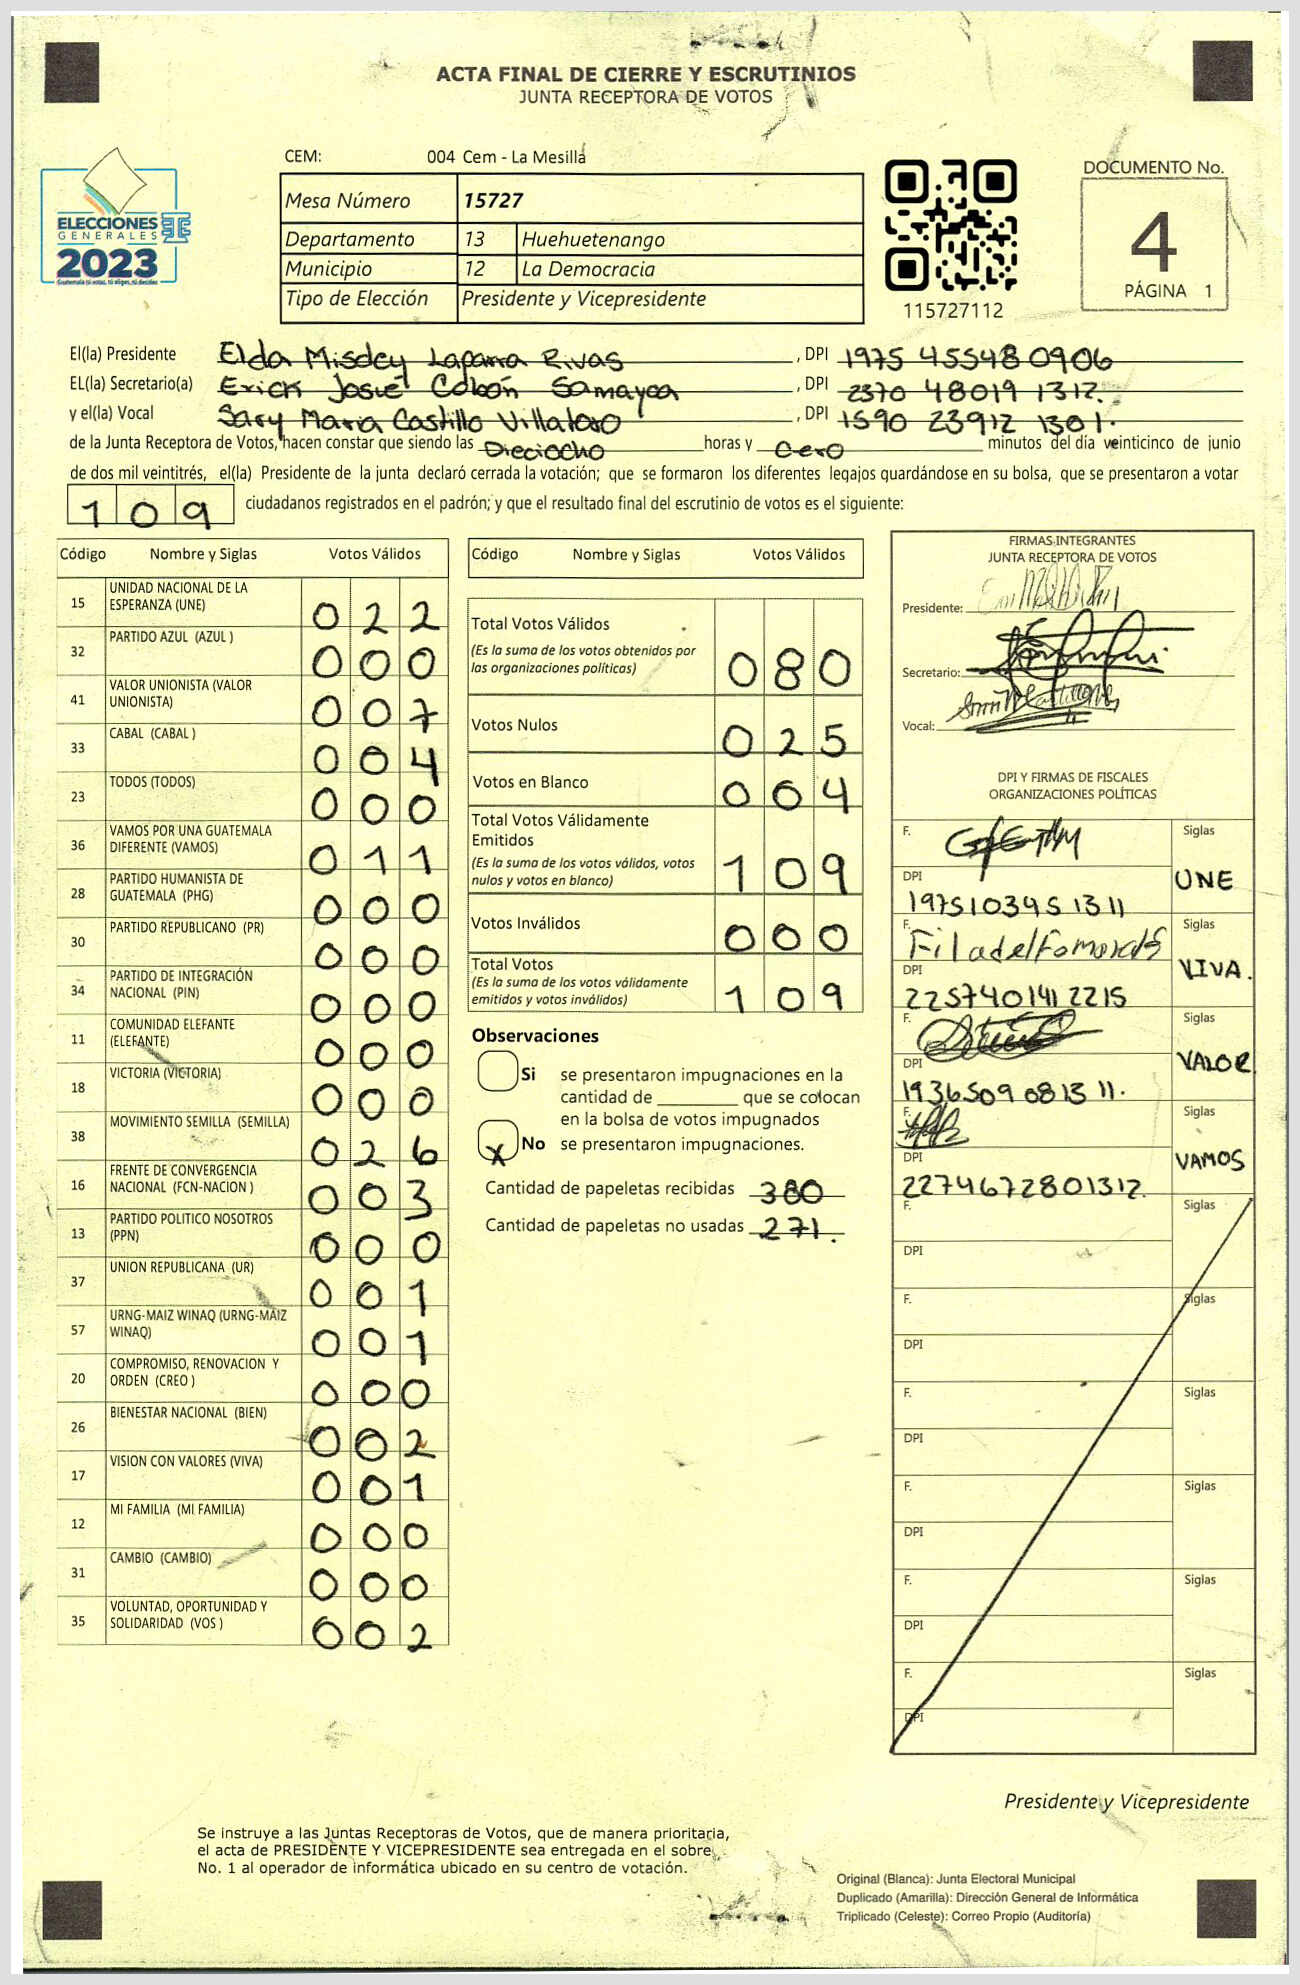 ACTA FINAL DE CIERRE Y ESCRUTINIOS
JUNTA RECEPTORA DE VOTOS
ELECCIONES
GENERALES
2023
Guatemala tú votas, tú eliges, tú decides
CEM: 004 Cem - La Mesilla
Mesa Número 15727
Departamento 13 Huehuetenango
Municipio 12 La Democracia
Tipo de Elección Presidente y Vicepresidente
115727112
DOCUMENTO No.
4
PÁGINA 1
El(la) Presidente Elda Misdey Laparra Rivas , DPI 1975 45548 0906
EL(la) Secretario(a) Erick Josué Cobón Samayoa , DPI 2370 48019 1312.
y el(la) Vocal Sary Maria Castillo Villatoro , DPI 1590 23912 1301.
de la Junta Receptora de Votos, hacen constar que siendo las Dieciocho horas y cero minutos del día veinticinco de junio
de dos mil veintitrés, el(la) Presidente de la junta declaró cerrada la votación; que se formaron los diferentes legajos guardándose en su bolsa, que se presentaron a votar
109 ciudadanos registrados en el padrón; y que el resultado final del escrutinio de votos es el siguiente:
Código Nombre y Siglas Votos Válidos
15 UNIDAD NACIONAL DE LA ESPERANZA (UNE) 022
32 PARTIDO AZUL (AZUL ) 000
41 VALOR UNIONISTA (VALOR UNIONISTA) 007
33 CABAL (CABAL ) 004
23 TODOS (TODOS) 000
36 VAMOS POR UNA GUATEMALA DIFERENTE (VAMOS) 011
28 PARTIDO HUMANISTA DE GUATEMALA (PHG) 000
30 PARTIDO REPUBLICANO (PR) 000
34 PARTIDO DE INTEGRACIÓN NACIONAL (PIN) 000
11 COMUNIDAD ELEFANTE (ELEFANTE) 000
18 VICTORIA (VICTORIA) 000
38 MOVIMIENTO SEMILLA (SEMILLA) 026
16 FRENTE DE CONVERGENCIA NACIONAL (FCN-NACION ) 003
13 PARTIDO POLITICO NOSOTROS (PPN) 000
37 UNION REPUBLICANA (UR) 001
57 URNG-MAIZ WINAQ (URNG-MAIZ WINAQ) 001
20 COMPROMISO, RENOVACION Y ORDEN (CREO ) 000
26 BIENESTAR NACIONAL (BIEN) 002
17 VISION CON VALORES (VIVA) 001
12 MI FAMILIA (MI FAMILIA) 000
31 CAMBIO (CAMBIO) 000
35 VOLUNTAD, OPORTUNIDAD Y SOLIDARIDAD (VOS ) 002
Código Nombre y Siglas Votos Válidos
Total Votos Válidos 080
(Es la suma de los votos obtenidos por
las organizaciones políticas)
Votos Nulos 025
Votos en Blanco 004
Total Votos Válidamente
Emitidos 109
(Es la suma de los votos válidos, votos
nulos y votos en blanco)
Votos Inválidos 000
Total Votos 109
(Es la suma de los votos válidamente
emitidos y votos inválidos)
Observaciones
Si se presentaron impugnaciones en la
cantidad de ________ que se colocan
en la bolsa de votos impugnados
X No se presentaron impugnaciones.
Cantidad de papeletas recibidas 380
Cantidad de papeletas no usadas 271.
FIRMAS INTEGRANTES
JUNTA RECEPTORA DE VOTOS
Presidente:
Secretario:
Vocal:
DPI Y FIRMAS DE FISCALES
ORGANIZACIONES POLÍTICAS
F. Siglas
DPI 1975103451311 UNE
F. Filadelfo Siglas
DPI 2257401412215 VIVA.
F. Siglas
DPI 1936509081311. VALOR
F. Siglas
DPI 2274672801312. VAMOS
F. Siglas
DPI
F. Siglas
DPI
F. Siglas
DPI
F. Siglas
DPI
F. Siglas
DPI
F. Siglas
DPI
Presidente y Vicepresidente
Se instruye a las Juntas Receptoras de Votos, que de manera prioritaria,
el acta de PRESIDENTE Y VICEPRESIDENTE sea entregada en el sobre
No. 1 al operador de informática ubicado en su centro de votación.
Original (Blanca): Junta Electoral Municipal
Duplicado (Amarilla): Dirección General de Informática
Triplicado (Celeste): Correo Propio (Auditoría)